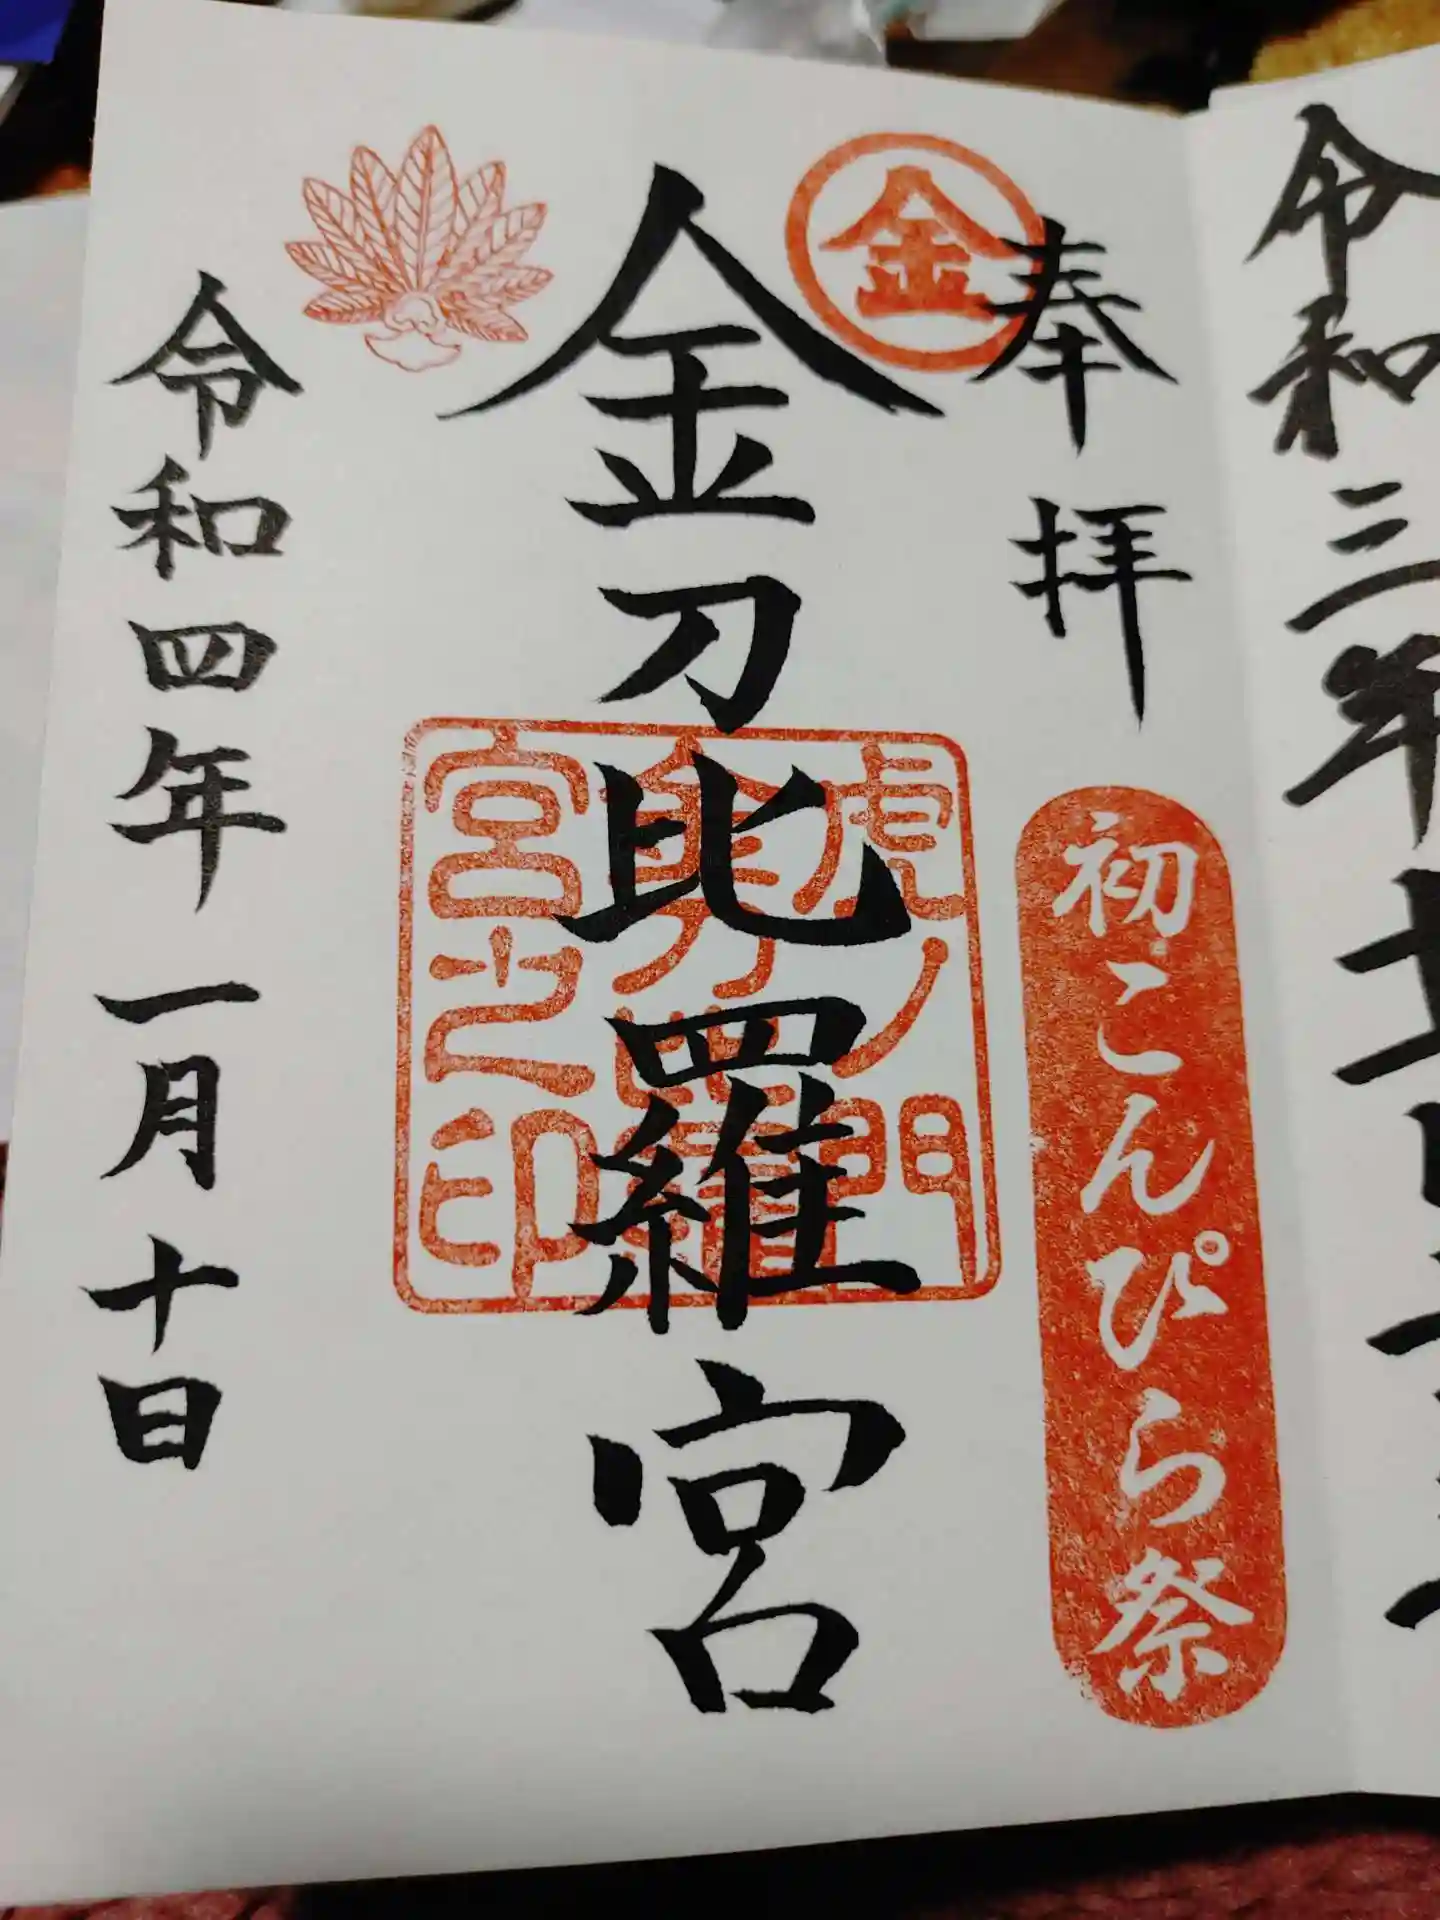 令和三年
奉拝
金
初こんぴら祭
金刀比羅宮
虎ノ門
金刀比羅
宮之印
令和四年一月十日